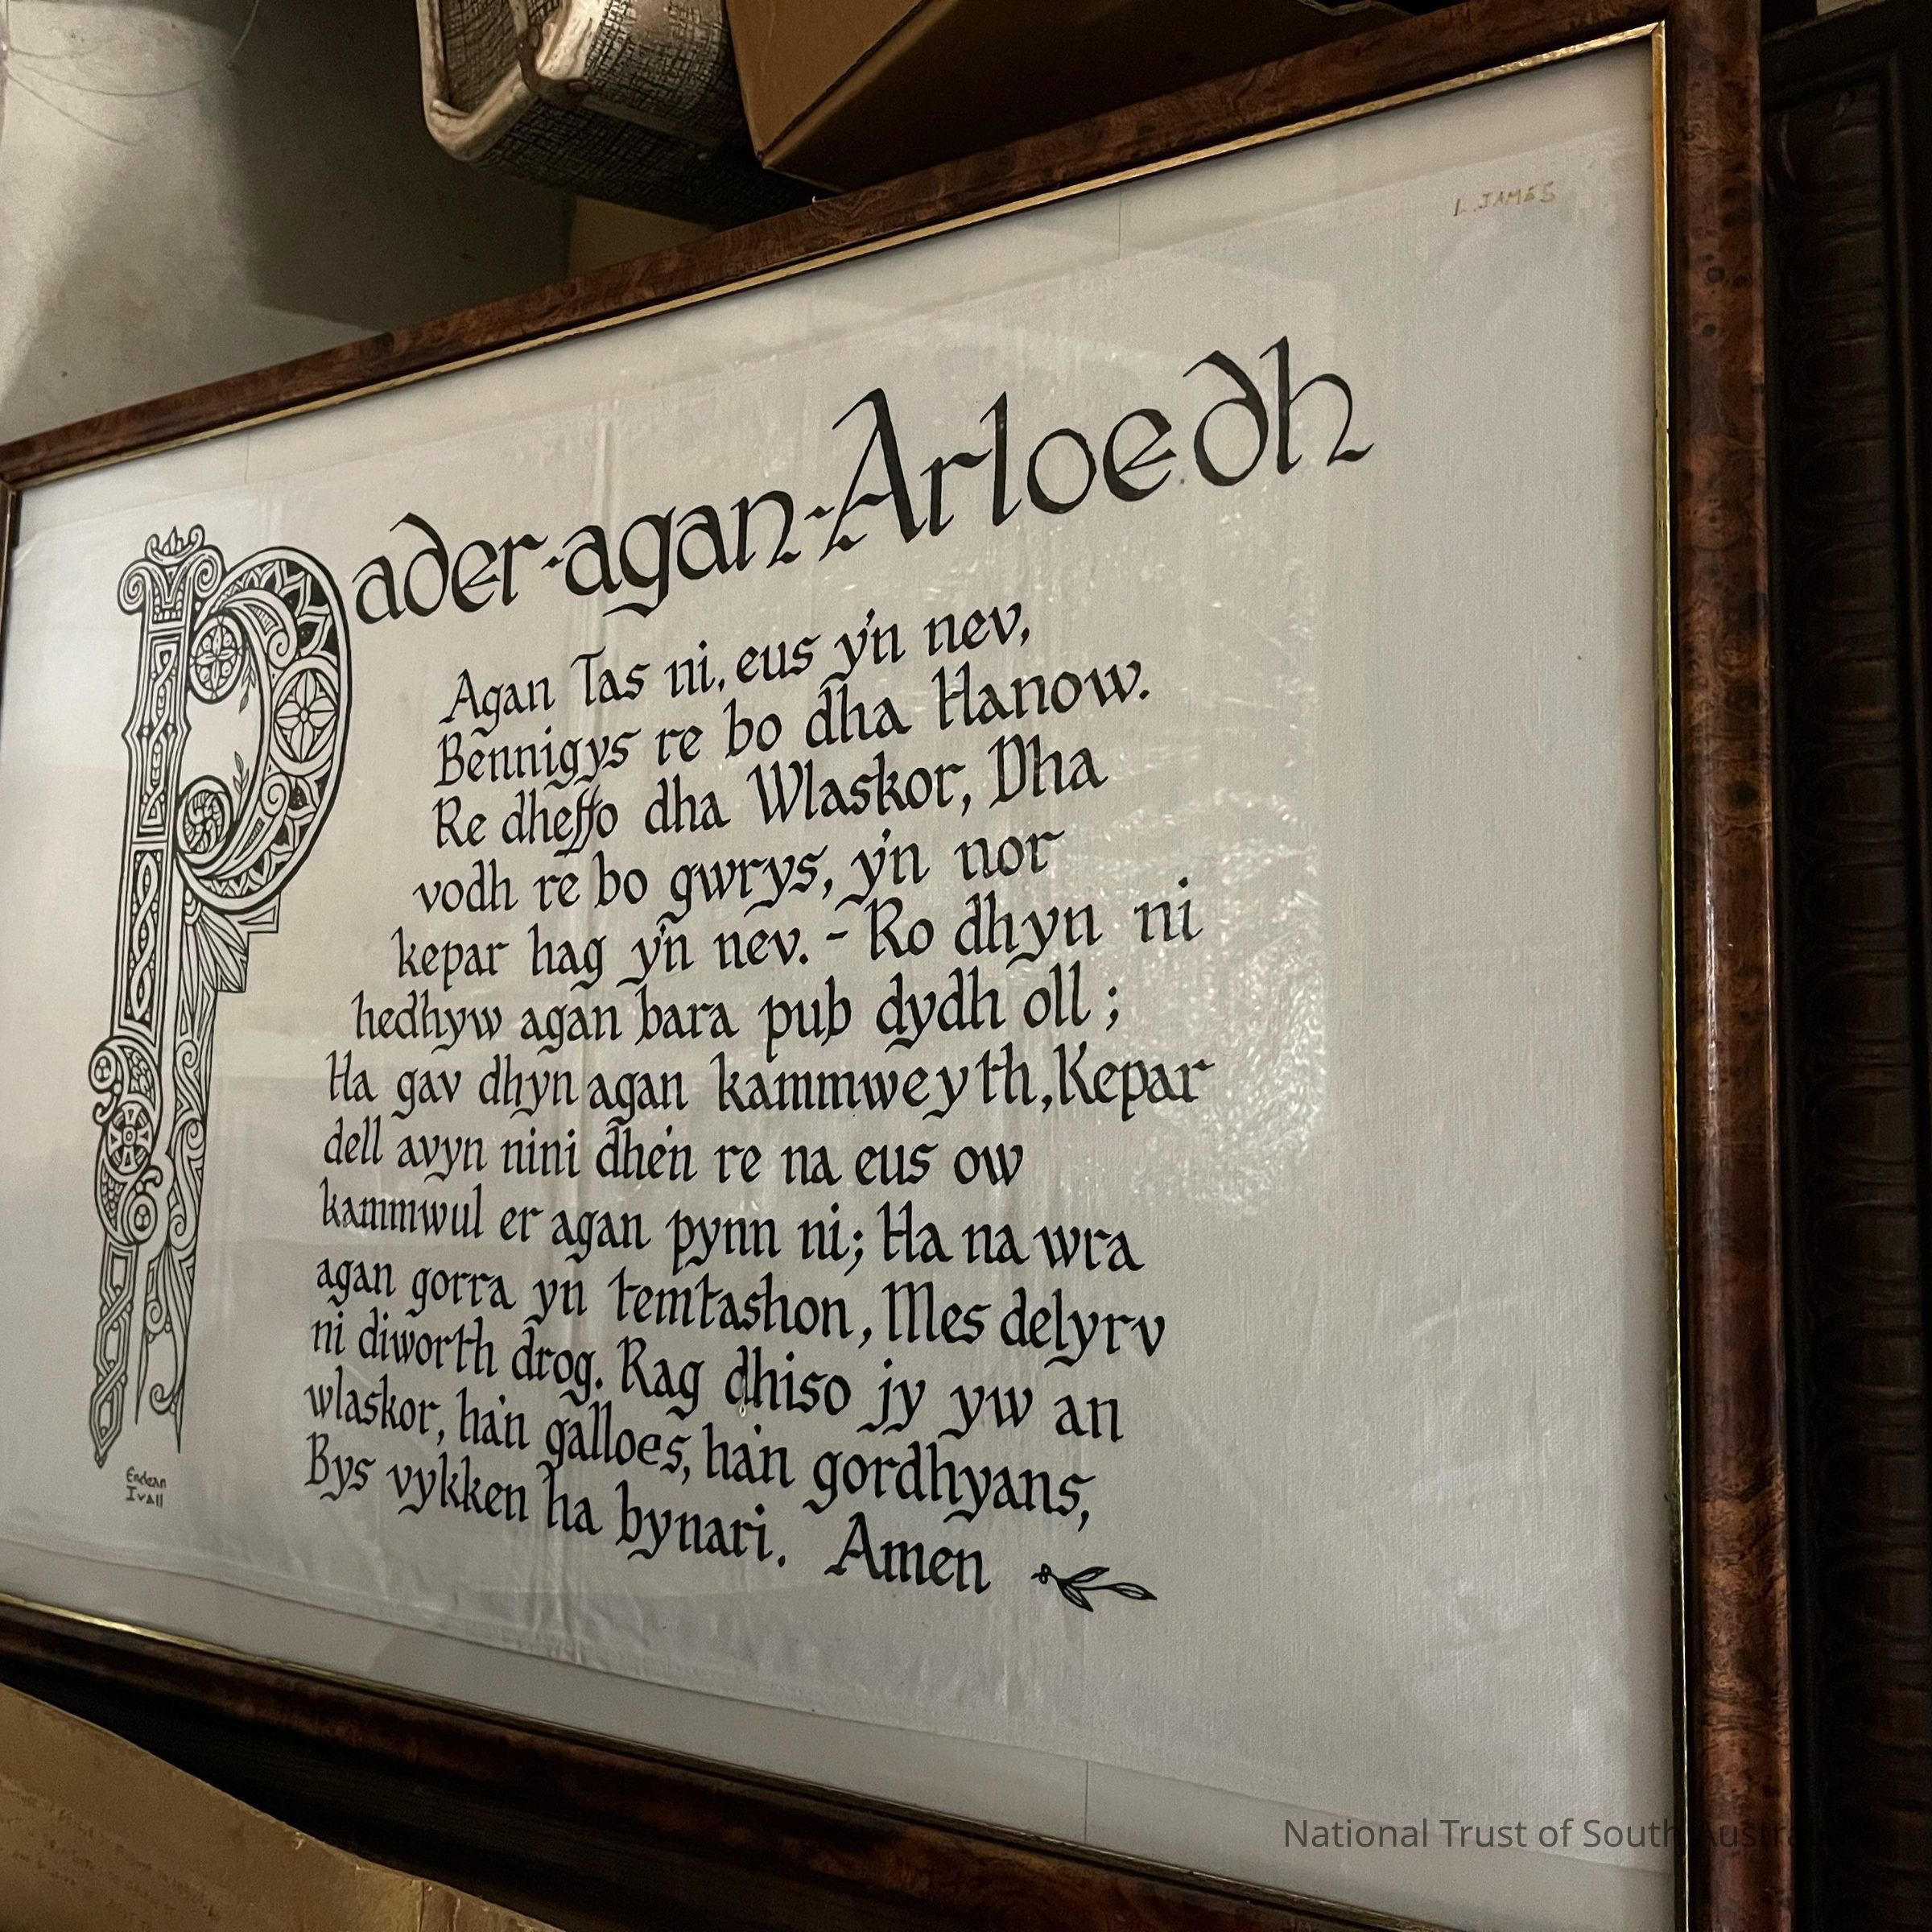 L. JAMES
Pader-agan-Arloedh
Agan Tas ni, eus y'n nev,
Bennigys re bo dha Hanow.
Re dheffo dha Wlaskor, Dha
vodh re bo gwrys, y'n nor
kepar hag y'n nev. - Ro dhyn ni
hedhyw agan bara pub dydh oll ;
Ha gav dhyn agan kammweyth, Kepar
dell avyn nini dhe'n re na eus ow
kammwul er agan pynn ni; Ha na wra
agan gorra yn temtashon, Mes delyrv
ni diworth drog. Rag dhiso jy yw an
wlaskor, ha'n galloes, ha'n gordhyans,
Bys vykken ha bynari. Amen
Endean
Ivall
National Trust of South Austra